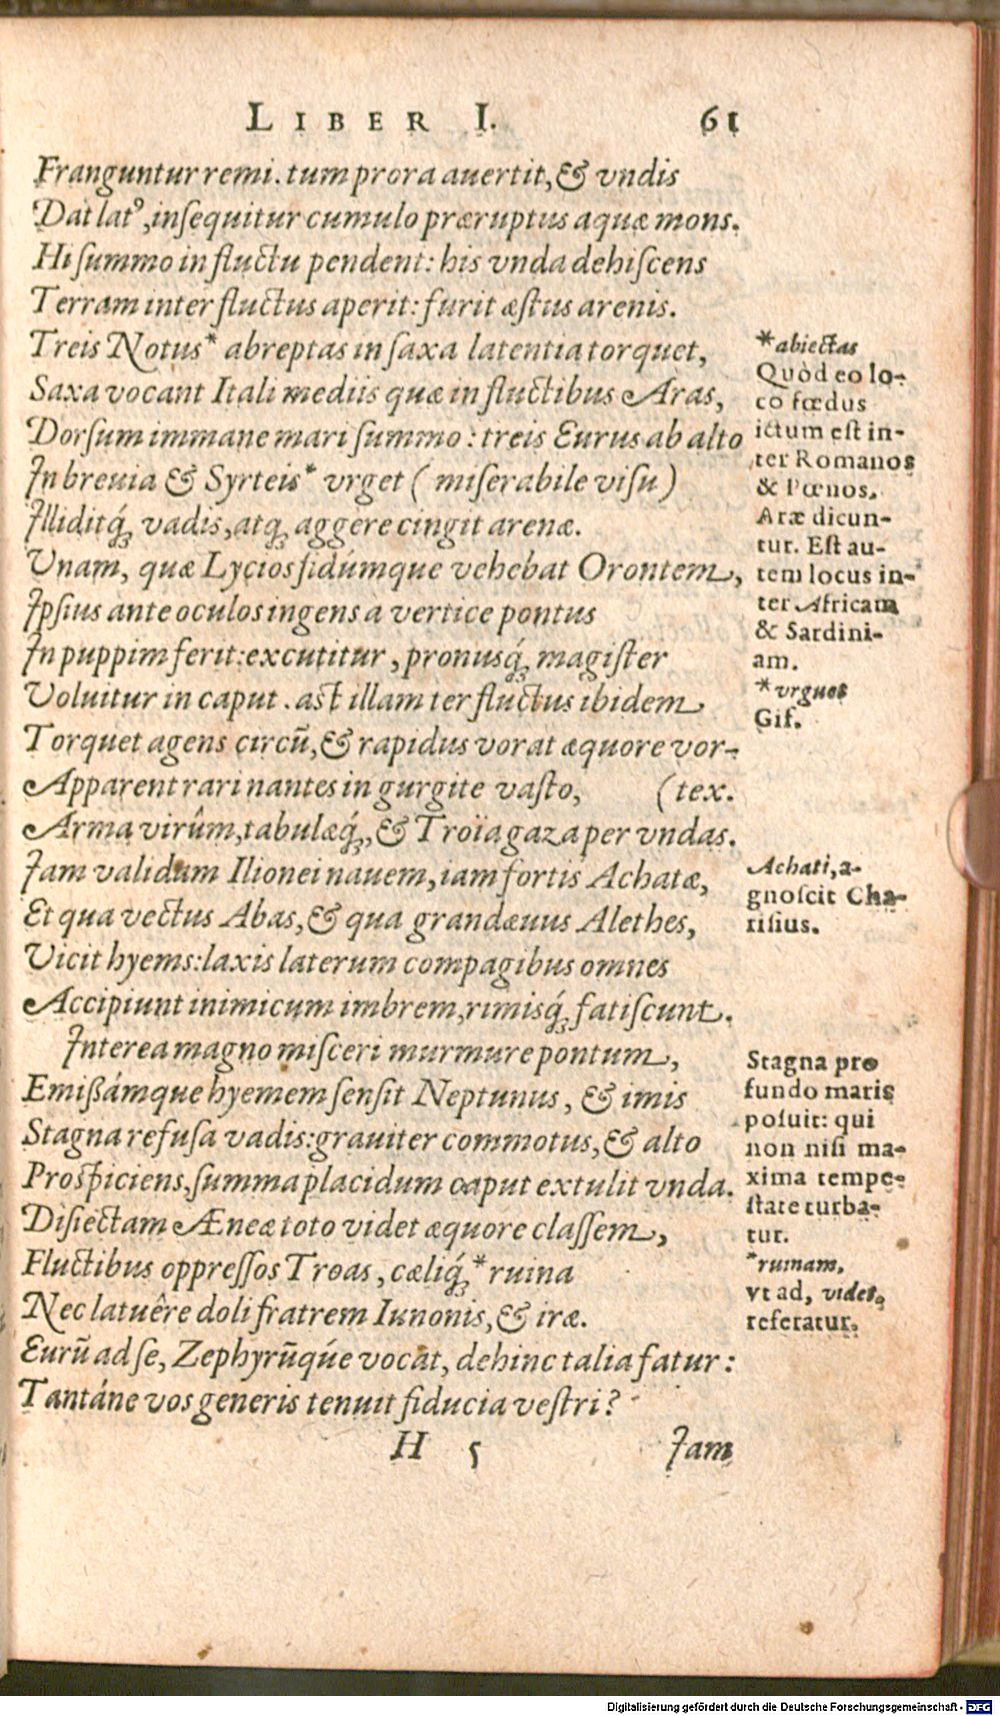 LIBER I. 61
Franguntur remi. tum prora auertit, & vndis
Dat latꝰ, insequitur cumulo præruptus aquæ mons.
Hi summo in fluctu pendent: his vnda dehiscens
Terram inter fluctus aperit: furit æstus arenis.
Treis Notus* abreptas in saxa latentia torquet,
Saxa vocant Itali mediis quæ in fluctibus Aras,
Dorsum immane mari summo: treis Eurus ab alto
In breuia & Syrteis* vrget (miserabile visu)
Illiditq́; vadis, atq; aggere cingit arenæ.
Unam, quæ Lycios fidúmque vehebat Orontem,
Ipsius ante oculos ingens à vertice pontus
In puppim ferit: excutitur, pronusq́; magister
Voluitur in caput. ast illam ter fluctus ibidem
Torquet agens circũ, & rapidus vorat æquore vor-
Apparent rari nantes in gurgite vasto, (tex.
Arma virûm, tabulæq́;, & Troïa gaza per vndas.
Jam validum Ilionei nauem, iam fortis Achatæ,
Et qua vectus Abas, & qua grandæuus Alethes,
Vicit hyems: laxis laterum compagibus omnes
Accipiunt inimicum imbrem, rimisq́; fatiscunt.
Interea magno misceri murmure pontum,
Emißámque hyemem sensit Neptunus, & imis
Stagna refusa vadis: grauiter commotus, & alto
Prospiciens, summa placidum caput extulit vnda.
Disiectam Æneæ toto videt æquore classem,
Fluctibus oppressos Troas, cæliq́; *ruina
Nec latuêre doli fratrem Iunonis, & iræ.
Eurũ ad se, Zephyrũq́ue vocat, dehinc talia fatur:
Tantáne vos generis tenuit fiducia vestri?
H 5 Jam
*abiectas
Quòd eo lo-
co fœdus
ictum est in-
ter Romanos
& Pœnos.
Aræ dicun-
tur. Est au-
tem locus in-
ter Africam
& Sardini-
am.
*vrguet
Gif.
Achati, a-
gnoscit Cha-
risius.
Stagna pro
fundo maris
posuit: qui
non nisi ma-
xima tempe-
state turba-
tur.
*ruinam,
vt ad, videt,
referatur.
Digitalisierung gefördert durch die Deutsche Forschungsgemeinschaft - DFG